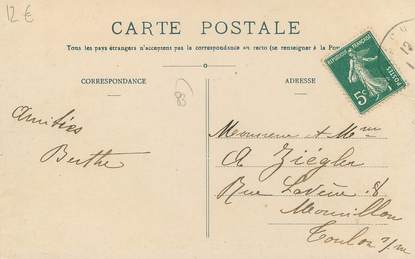 12€
CARTE POSTALE
Tous les pays étrangers n'acceptent pas la correspondance au recto (se renseigner à la Pos
CORRESPONDANCE
ADRESSE
83
Amitiés
Berthe
Monsieur et Mme
A Ziégler
Rue Lavène 8
Mourillon
Toulon s/m
POSTES
5c
12